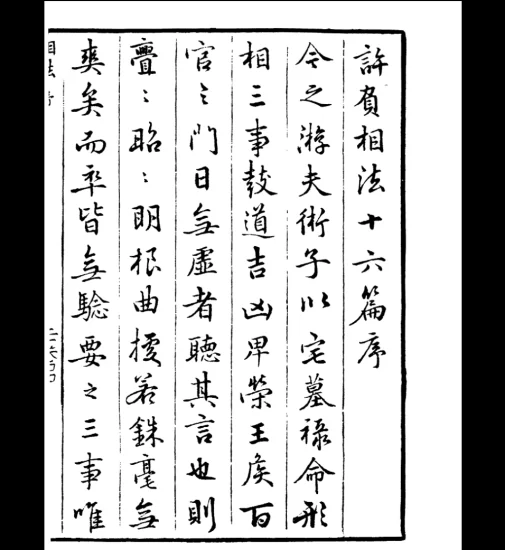 許負相法十六篇序
今之游夫術子以宅墓祿命形
相三事鼓道吉凶卑榮王侯百
官之門日無虛者聽其言也則
亹〻昭〻明根曲援若銖毫無
爽矣而率皆無驗要之三事唯